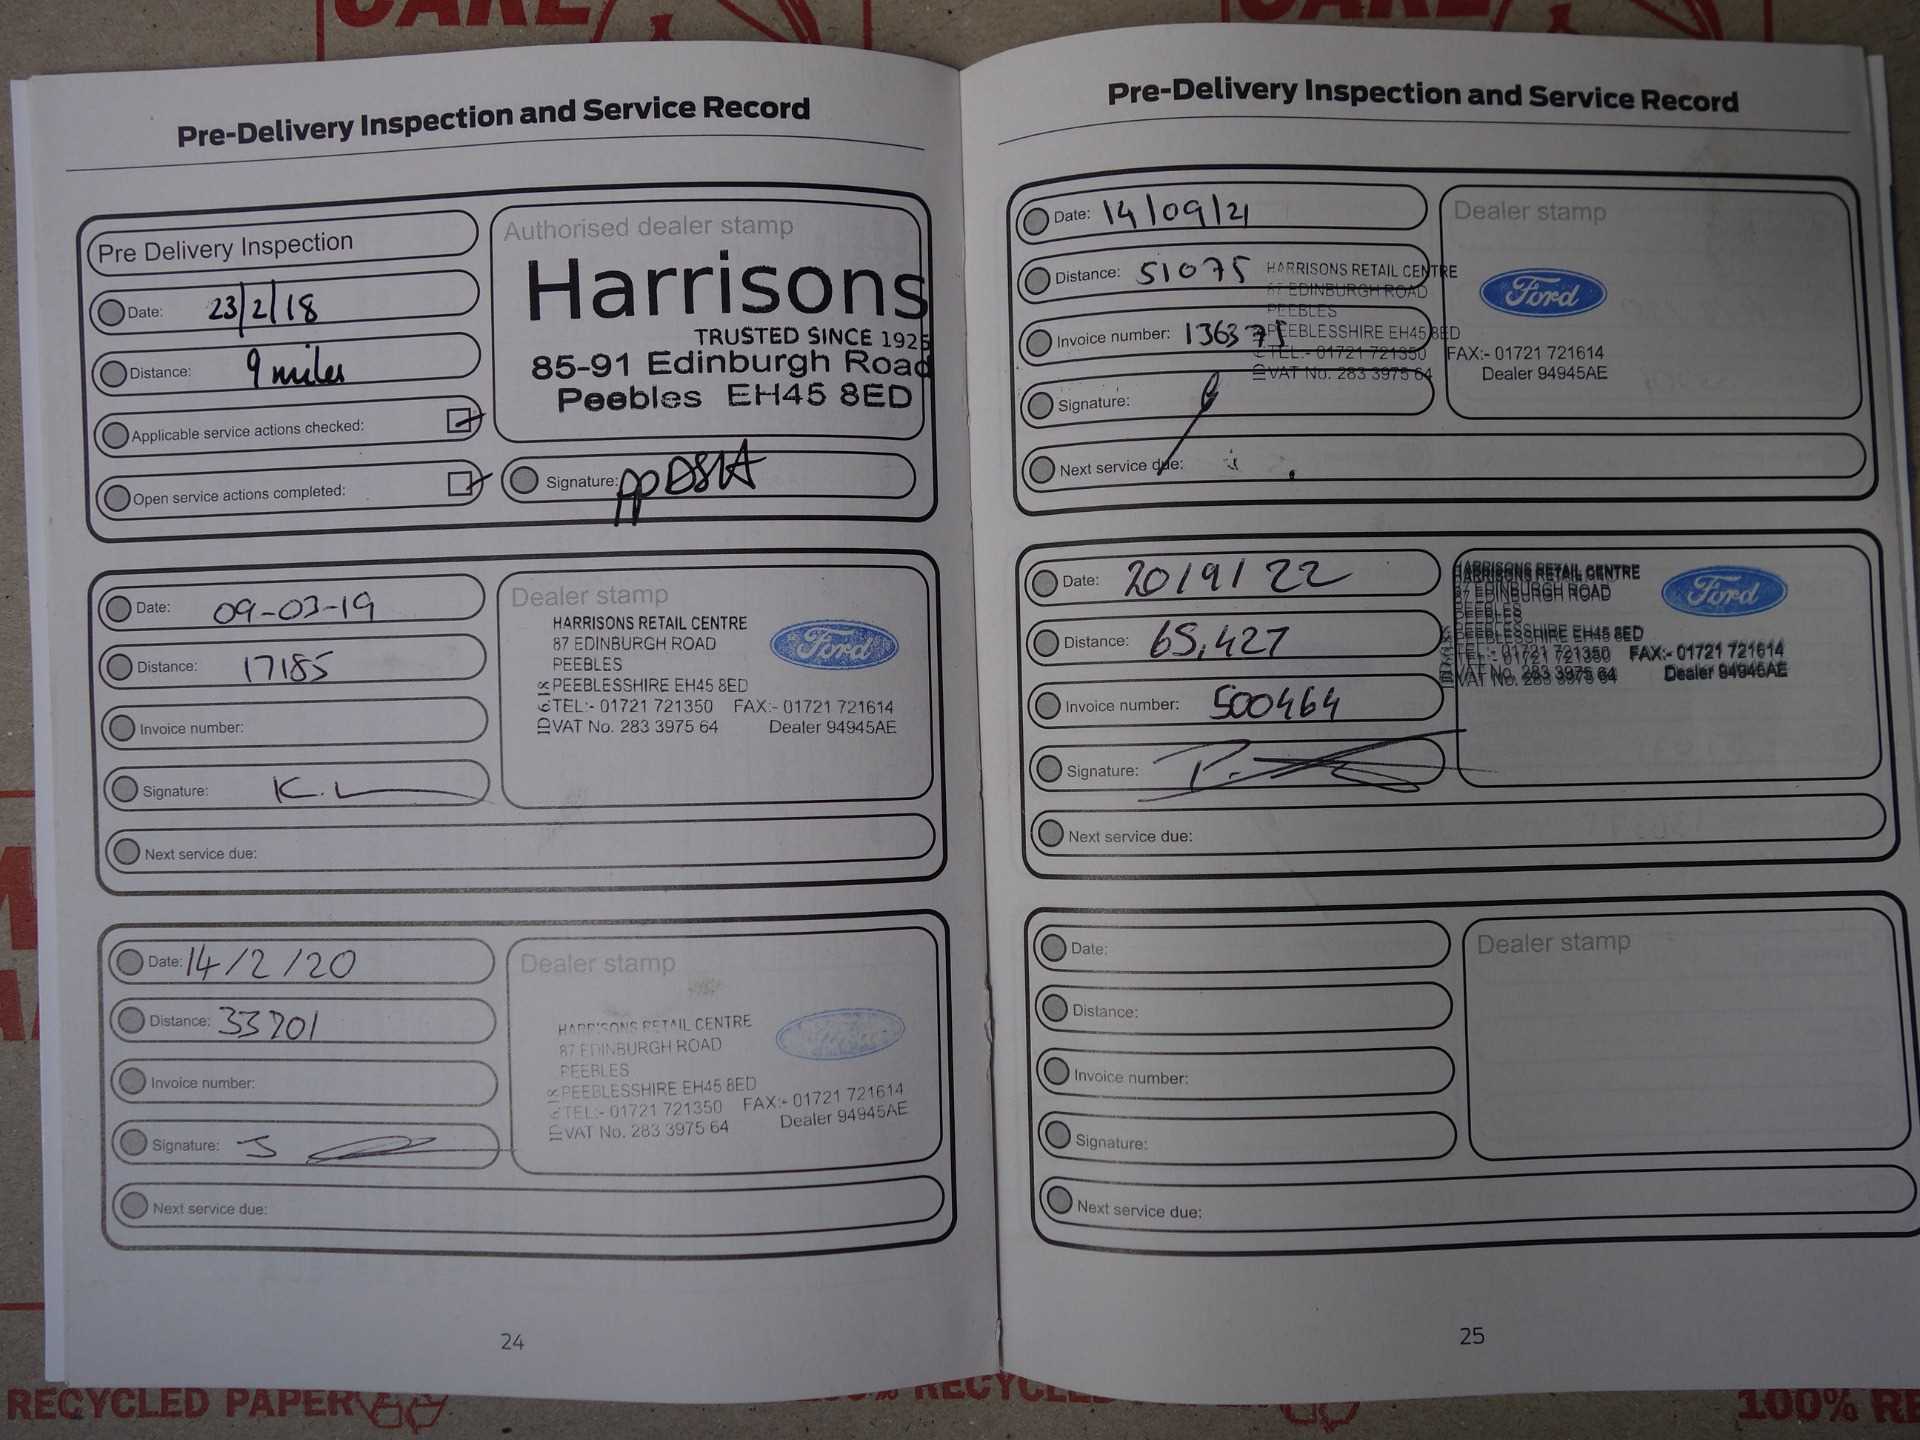 CARE
CARE
Pre-Delivery Inspection and Service Record
Pre Delivery Inspection
Date: 23/2/18
Distance: 9 miles
Applicable service actions checked:
Open service actions completed:
Authorised dealer stamp
Harrisons
TRUSTED SINCE 1925
85-91 Edinburgh Road
Peebles EH45 8ED
Signature:
Date: 09-03-19
Distance: 17185
Invoice number:
Signature: K.L
Next service due:
Dealer stamp
HARRISONS RETAIL CENTRE
87 EDINBURGH ROAD
PEEBLES
PEEBLESSHIRE EH45 8ED
TEL:- 01721 721350 FAX:- 01721 721614
VAT No. 283 3975 64 Dealer 94945AE
Ford
Date: 14/2/20
Distance: 33701
Invoice number:
Signature: J
Next service due:
Dealer stamp
HARRISONS RETAIL CENTRE
87 EDINBURGH ROAD
PEEBLES
PEEBLESSHIRE EH45 8ED
TEL:- 01721 721350 FAX:- 01721 721614
VAT No. 283 3975 64 Dealer 94945AE
Ford
24
Pre-Delivery Inspection and Service Record
Date: 14/09/21
Distance: 51075
Invoice number: 136375
Signature:
Next service due:
Dealer stamp
HARRISONS RETAIL CENTRE
87 EDINBURGH ROAD
PEEBLES
PEEBLESSHIRE EH45 8ED
TEL:- 01721 721350 FAX:- 01721 721614
VAT No. 283 3975 64 Dealer 94945AE
Ford
Date: 20/9/22
Distance: 65,427
Invoice number: 500464
Signature:
Next service due:
HARRISONS RETAIL CENTRE
87 EDINBURGH ROAD
PEEBLES
PEEBLESSHIRE EH45 8ED
TEL:- 01721 721350 FAX:- 01721 721614
VAT No. 283 3975 64 Dealer 94945AE
Ford
Date:
Distance:
Invoice number:
Signature:
Next service due:
Dealer stamp
25
RECYCLED PAPER
% RECYCLED
100% RE